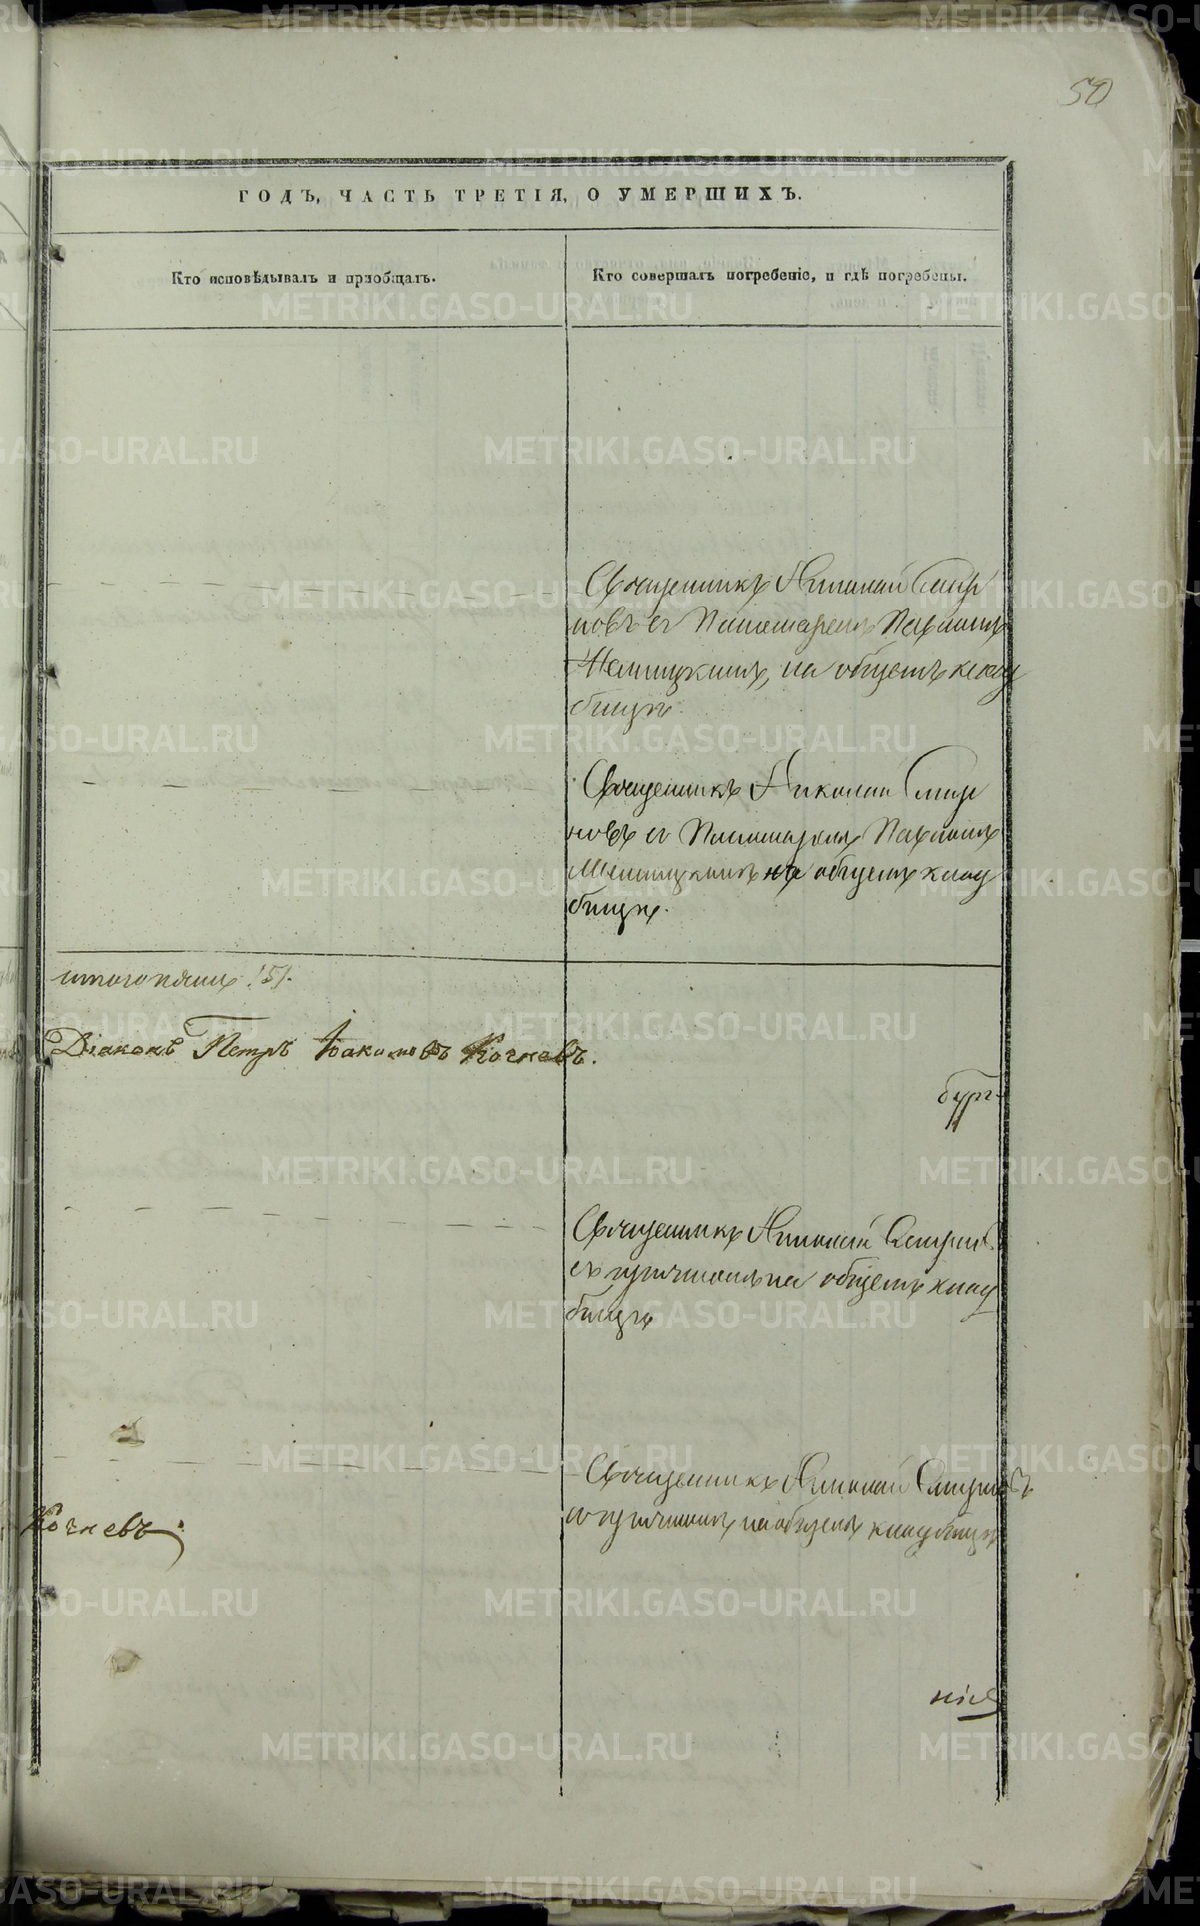 50
ГОДЪ, ЧАСТЬ ТРЕТІЯ, О УМЕРШИХЪ.
Кто исповѣдывалъ и пріобщалъ.
Кто совершалъ погребеніе, и гдѣ погребены.
Священникъ Николай Смир
новъ съ Пономаремъ Павломъ
на общемъ клад
бищѣ
Священникъ Николай Смир
новъ съ Пономаремъ Павломъ
на общемъ клад
бищѣ.
итого
Діаконъ Петръ Іоакимовъ Кочневъ.
бург
Священникъ Николай Смирновъ
съ причтомъ на общемъ клад
бищѣ
Священникъ Николай Смирновъ
съ причтомъ на общемъ кладбищѣ
Кочневъ.
ніе
METRIKI.GASO-URAL.RU